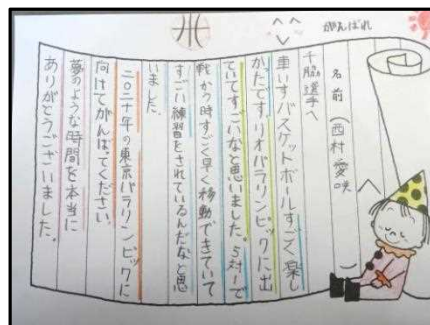 がんばれ
名前（西村愛咲）
千脇選手へ
車いすバスケットボールすごく楽し
かったです。リオパラリンピックに出
ていてすごいなと思いました。5対1で
戦かう時すごく早く移動できていて
すごい練習をされているんだなと思
いました。
二〇二十年の東京パラリンピックに
向けてがんばってください。
夢のような時間を本当に
ありがとうございました。